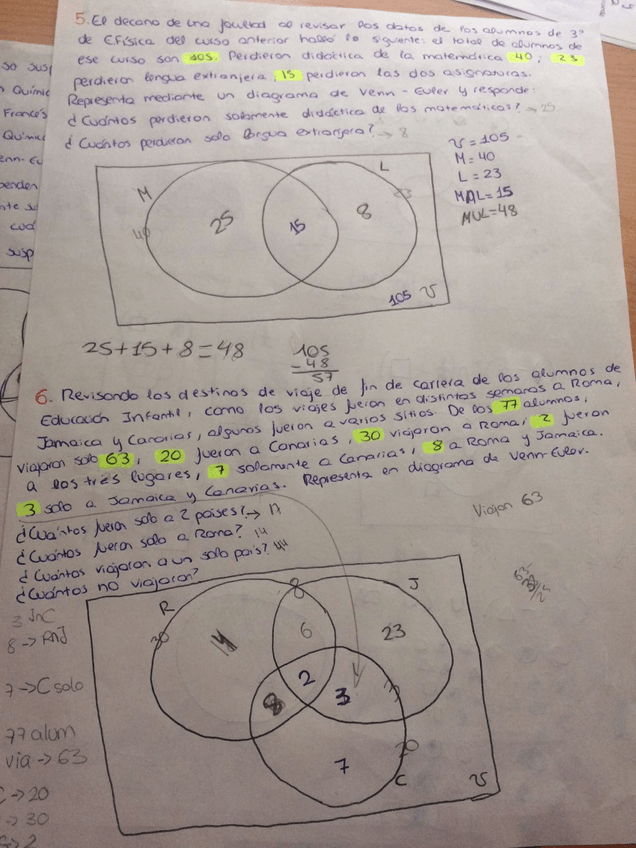 5. El decano de una facultad al revisar los datos de los alumnos de 3º
de E.física del curso anterior halló lo siguiente: el total de alumnos de
ese curso son 105. Perdieron didáctica de la matemática 40, 23
perdieron lengua extranjera, 15 perdieron las dos asignaturas.
Representa mediante un diagrama de Venn-Euler y responde:
¿Cuántos perdieron solamente didáctica de las matemáticas? → 25
¿Cuántos perdieron solo lengua extranjera? → 8
U = 105
M = 40
L = 23
M∩L = 15
MUL = 48
M
L
40
25
15
8
23
105 U
25 + 15 + 8 = 48
105
- 48
57
6. Revisando los destinos de viaje de fin de carrera de los alumnos de
Educación Infantil, como los viajes fueron en distintas semanas a Roma,
Jamaica y Canarias, algunos fueron a varios sitios. De los 77 alumnos,
viajaron solo 63, 20 fueron a Canarias, 30 viajaron a Roma, 2 fueron
a los tres lugares, 7 solamente a Canarias, 8 a Roma y Jamaica.
3 solo a Jamaica y Canarias. Representa en diagrama de Venn-Euler.
¿Cuántos fueron solo a 2 países? → 17
¿Cuántos fueron solo a Roma? 14
¿Cuántos viajaron a un solo país? 44
¿Cuántos no viajaron?
Viajan 63
R
8
J
30
14
6
23
2
8
3
7
20
C
U
3 JnC
8 → RnJ
7 → C solo
77 alum
via → 63
C → 20
→ 30
→ 2
so susp
Química
Francés
Química
enn-Eu
penden
nte so
cuá
susp